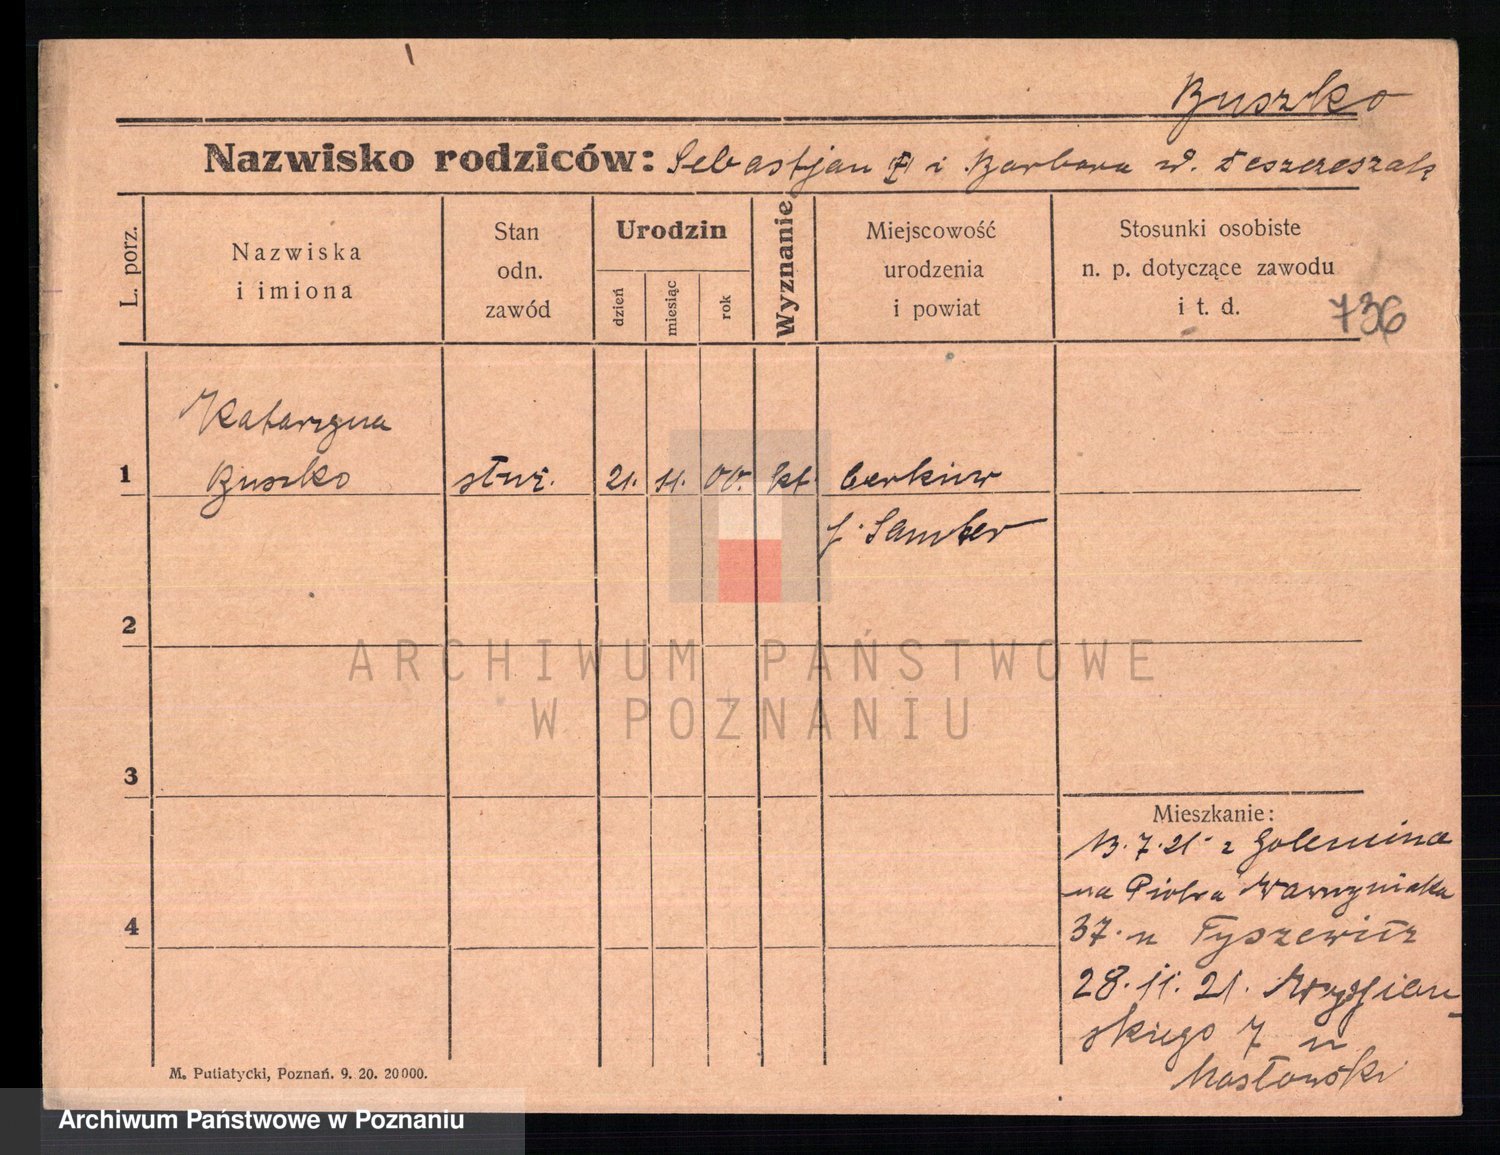 Buszko
Nazwisko rodziców: Sebastjan i Barbara
L. porz.
Nazwiska
i imiona
Stan
odn.
zawód
Urodzin
dzień
miesiąc
rok
Wyznanie
Miejscowość
urodzenia
i powiat
Stosunki osobiste
n. p. dotyczące zawodu
i t. d.
736
Katarzyna
1 Buszko służ. 21. 11. 00. kt.
Sambor
2
3
4
Mieszkanie:
13. 7. 21 z
na Piotra Wawrzyniaka
37. u Tyszewicz
28. 11. 21. Wyspian-
skiego 7 u
Masłowski
M. Putiatycki, Poznań. 9. 20. 20000.
ARCHIWUM PAŃSTWOWE
W POZNANIU
Archiwum Państwowe w Poznaniu